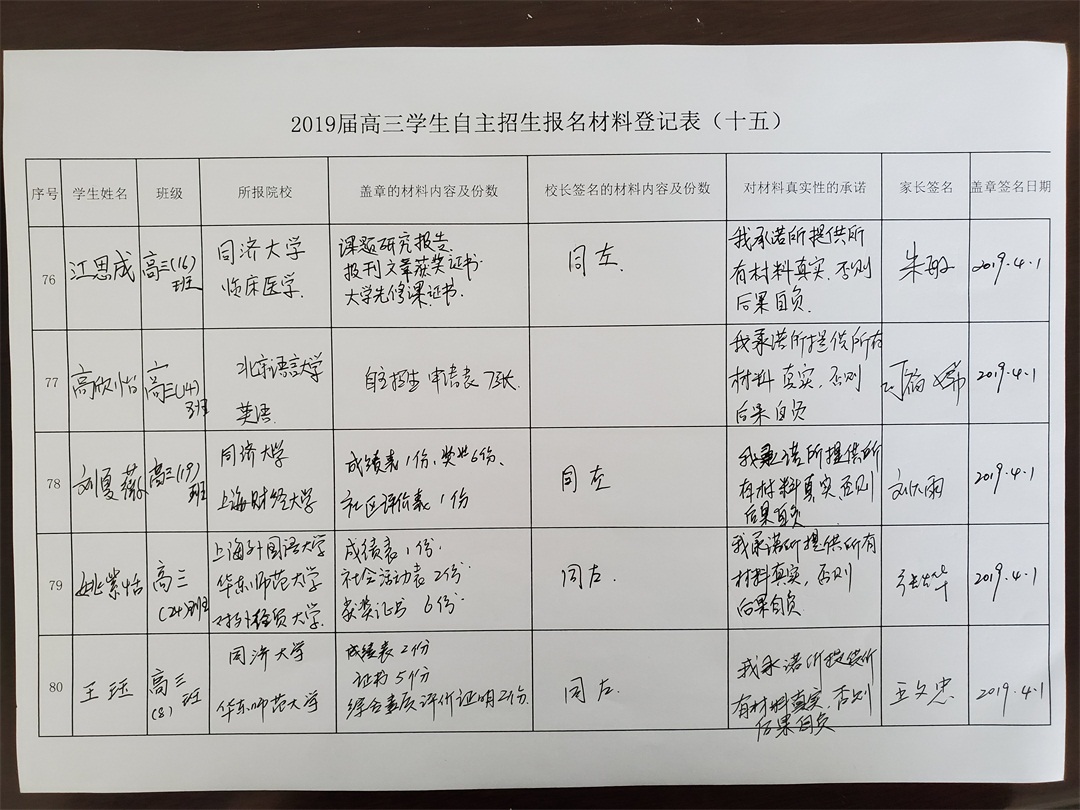 2019届高三学生自主招生报名材料登记表（十五）
序号 学生姓名 班级 所报院校 盖章的材料内容及份数 校长签名的材料内容及份数 对材料真实性的承诺 家长签名 盖章签名日期
76 江思成 高三(16)班 同济大学 临床医学. 课题研究报告. 报刊文章获奖证书. 大学先修课证书. 同左. 我承诺所提供所有材料真实.否则后果自负. 朱 2019.4.1
77 高欣怡 高三(14)班 北京语言大学 英语. 自主招生申请表 7张. 我承诺所提供所有材料真实.否则后果自负 2019.4.1
78 刘夏薇 高三(19)班 同济大学 上海财经大学 成绩表1份、奖状6份、社区评价表1份 同左 我承诺所提供所有材料真实否则后果自负 刘大雨 2019.4.1
79 姚紫恬 高三(24)班 上海外国语大学 华东师范大学 对外经贸大学. 成绩表1份. 社会活动表2份. 获奖证书 6份. 同左. 我承诺所提供所有材料真实，否则后果自负. 2019.4.1
80 王珏 高三(8)班 同济大学 华东师范大学 成绩表2份 证书5份 综合素质评价证明2份. 同左. 我承诺所提供所有材料真实，否则后果自负 王文忠 2019.4.1